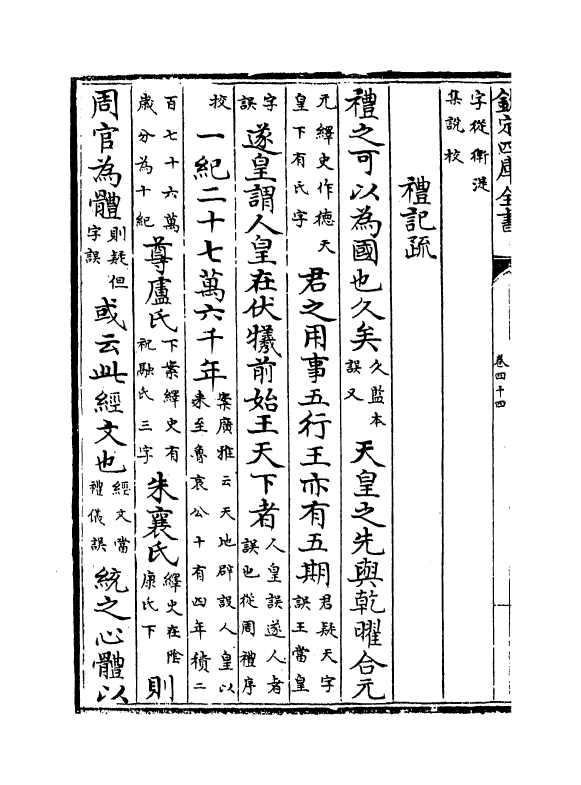 欽定四庫全書
卷四十四
字從衛湜
集說校
禮記疏
禮之可以為國也久矣久監本誤又天皇之先與乾曜合元
元繹史作徳天皇下有氏字君之用事五行王亦有五期君疑天字誤王當皇
字誤遂皇謂人皇在伏犧前始王天下者人皇誤遂人者誤也從周禮序
校一紀二十七萬六千年案廣雅云天地辟設人皇以来至魯哀公十有四年積二
百七十六萬歳分為十紀尊盧氏下案繹史有祝融氏三字朱襄氏繹史在陰康氏下則
周官為體則疑但字誤或云此經文也經文當禮儀誤統之心體以